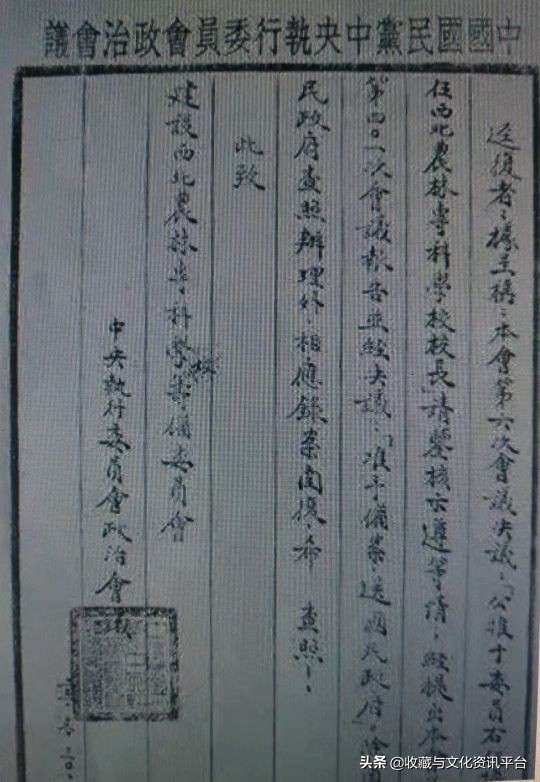 中國國民黨中央執行委員會政治會議
逕復者：據呈稱：本會第六次會議決議：「公推于委員右任
任西北農林專科學校校長」請鑒核示遵等情，經提出本會
第四〇一次會議報告並經決議：「准予備案，送國民政府。」除
民政府查照辦理外，相應錄案函復，希 查照，
此致
建設西北農林專科學校籌備委員會
中央執行委員會政治會議
头条 @收藏与文化资讯平台